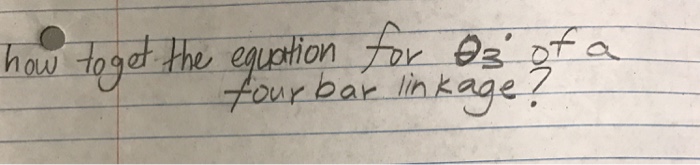 how to get the equation for θ̇3 of a
four bar linkage?